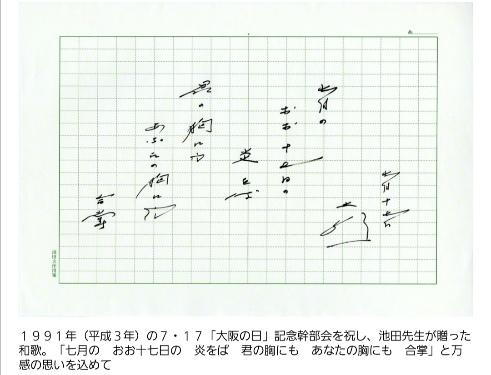 七月十七日
七月の
おお十七日の
炎をば
君の胸にも
あなたの胸にも
合掌
１９９１年（平成３年）の７・１７「大阪の日」記念幹部会を祝し、池田先生が贈った
和歌。「七月の　おお十七日の　炎をば　君の胸にも　あなたの胸にも　合掌」と万
感の思いを込めて